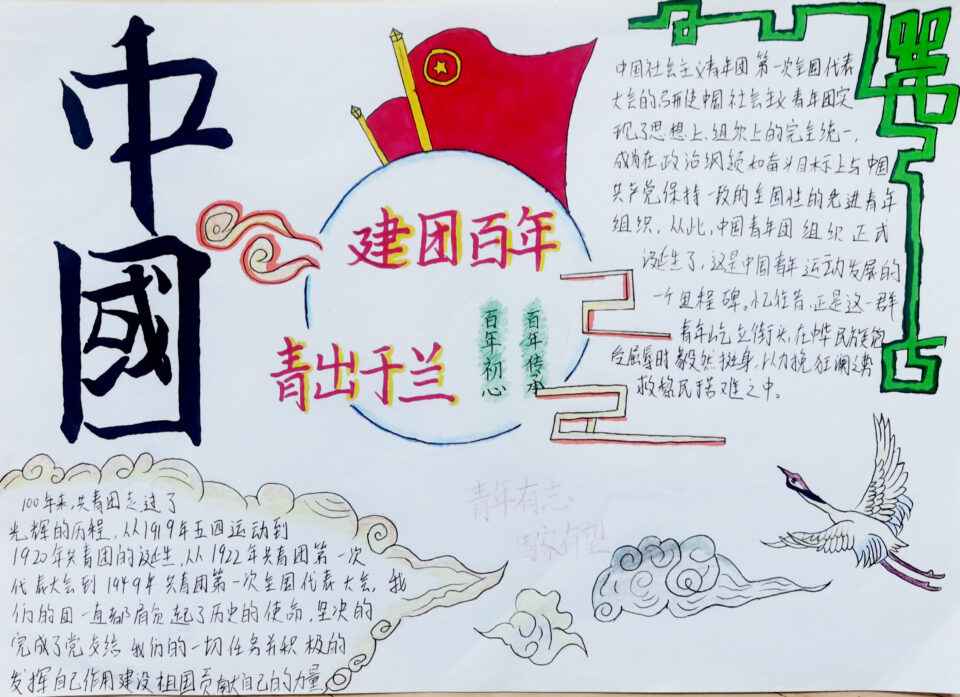 中國
建团百年
青出于兰
百年初心
百年传承
中国社会主义青年团第一次全国代表
大会的召开使中国社会主义青年团实
现了思想上、组织上的完全统一,
成为在政治纲领和奋斗目标上与中国
共产党保持一致的全国性的先进青年
组织,从此,中国青年团组织正式
诞生了,这是中国青年运动发展的
一个里程碑。忆往昔,正是这一群
青年屹立街头,在中华民族饱
受屈辱时毅然挺身,以力挽狂澜之势
救黎民于苦难之中。
青年有志
国家有望
100年来,共青团走过了
光辉的历程,从1919年五四运动到
1920年共青团的诞生,从1922年共青团第一次
代表大会到1949年共青团第一次全国代表大会,我
们的团一直都肩负起了历史的使命,坚决的
完成了党交给我们的一切任务并积极的
发挥自己作用建设祖国贡献自己的力量